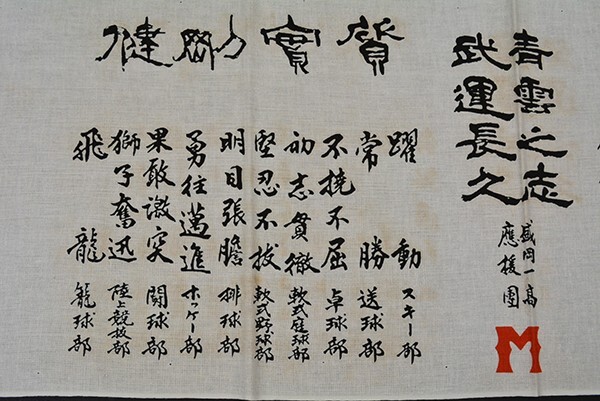 青雲之志
武運長久
盛岡一高
應援團
M
質實剛健
躍動 スキー部
常勝 送球部
不撓不屈 卓球部
初志貫徹 軟式庭球部
堅忍不抜 軟式野球部
明目張膽 排球部
勇往邁進 ホッケー部
果敢激突 闘球部
獅子奮迅 陸上競技部
飛龍 籠球部